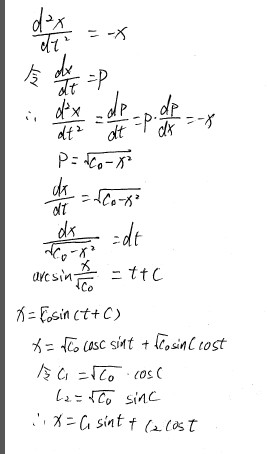 d²x/dt² = -x
令 dx/dt = p
∴ d²x/dt² = dp/dt = p·dp/dx = -x
P = √(C₀-x²)
dx/dt = √(C₀-x²)
dx/√(C₀-x²) = dt
arcsin x/√C₀ = t+C
x = √C₀ sin(t+C)
x = √C₀ cosC sint + √C₀ sinC cost
令 C₁ = √C₀ · cosC
C₂ = √C₀ sinC
∴ x = C₁ sint + C₂ cost